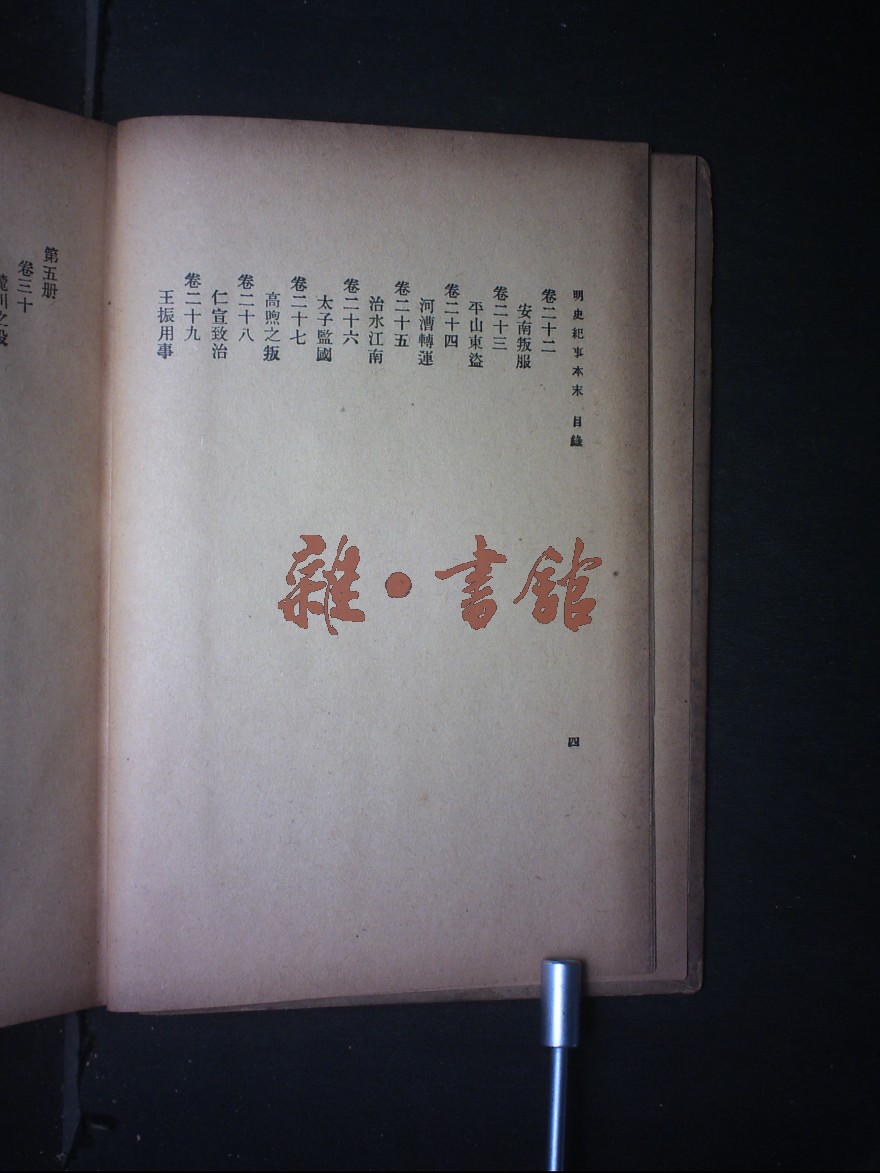 明史紀事本末 目錄
卷二十二
安南叛服
卷二十三
平山東盜
卷二十四
河漕轉運
卷二十五
治水江南
卷二十六
太子監國
卷二十七
高煦之叛
卷二十八
仁宣致治
卷二十九
王振用事
四
雜·書館
第五册
卷三十
麓川之役